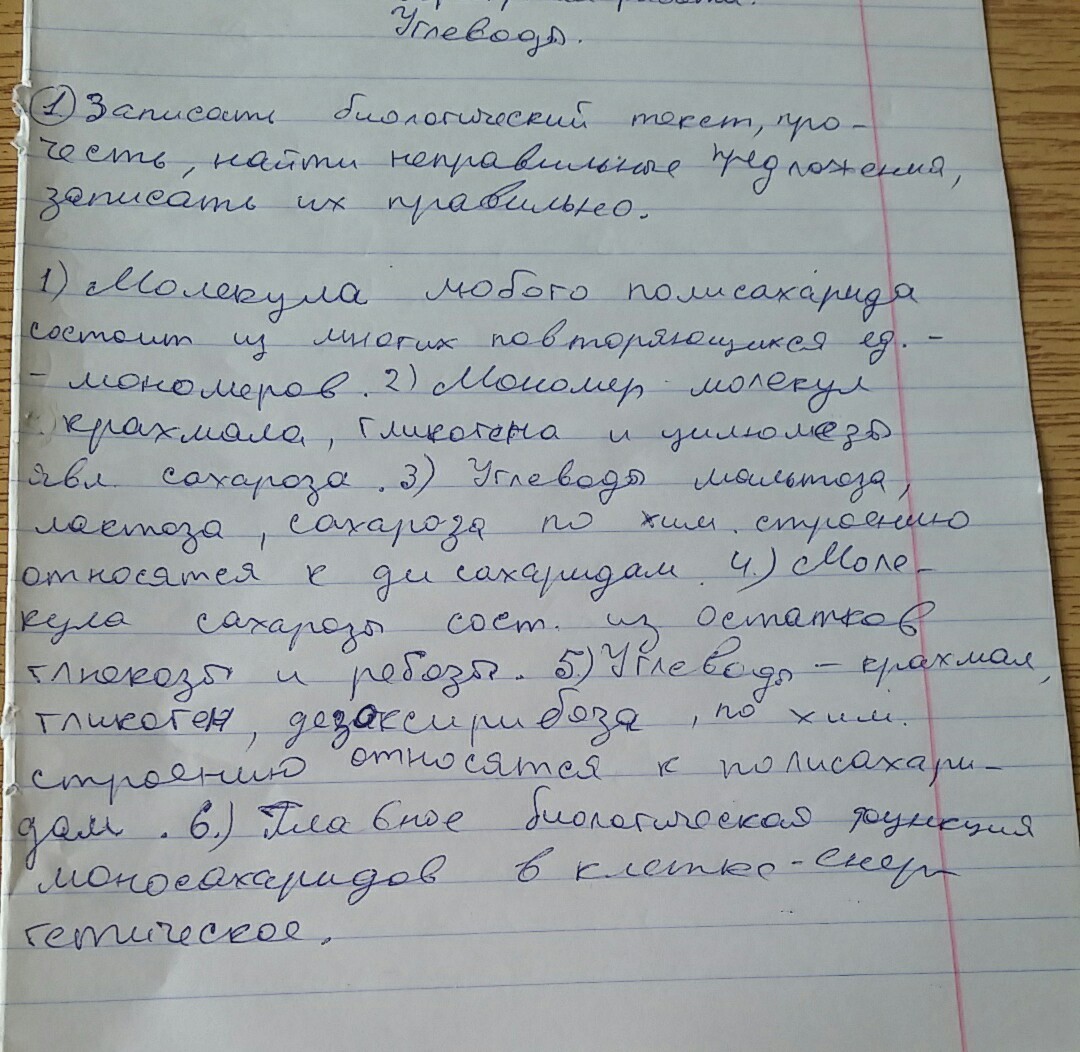 работа.
Углеводы.
1) Записать биологический текст, про-
честь, найти неправильные предложения,
записать их правильно.
1) Молекула любого полисахарида
состоит из многих повторяющихся ед. -
- мономеров. 2) Мономер молекул
крахмала, гликогена и цилюмезы
явл. сахароза. 3) Углеводы мальтоза,
лактоза, сахароза по хим. строению
относятся к дисахаридам. 4.) Моле-
кула сахарозы сост. из остатков
глюкозы и ребозы. 5.) Углеводы - крахмал,
гликоген, дезоксирибоза, по хим.
строению относятся к полисахари-
дам. 6.) Главное биологическая функция
моносахаридов в клетке - енер
гетическое.